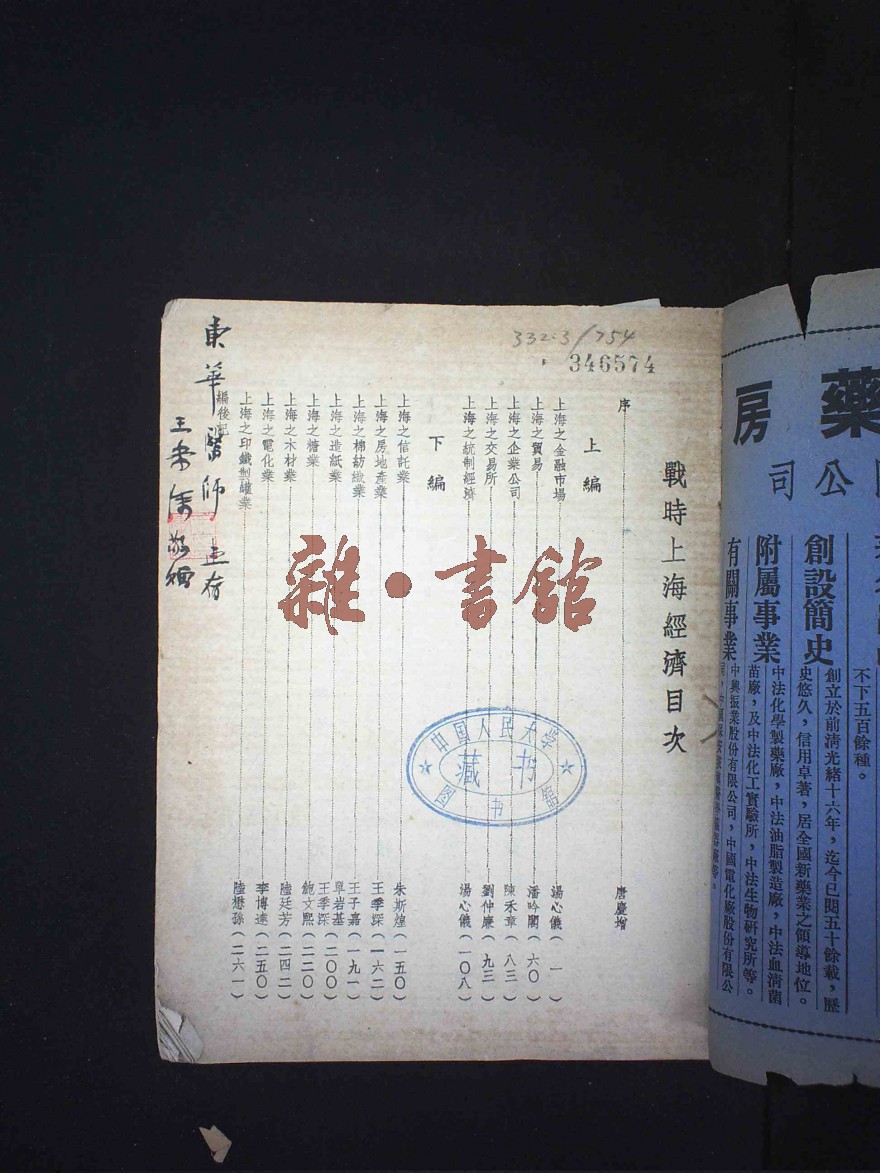 332.3/754
346574
戰時上海經濟目次
序 唐慶增
上編
上海之金融市場 湯心儀(一)
上海之貿易 潘吟閣(六〇)
上海之企業公司 陳禾章(八三)
上海之交易所 劉仲廉(九三)
上海之統制經濟 湯心儀(一〇八)
下編
上海之信託業 朱斯煌(一五〇)
上海之房地產業 王季深(一六二)
上海之棉紡織業 王子嘉(一九一)
上海之造紙業 單岩基 王季深(二〇〇)
上海之糖業 鮑文熙(二二〇)
上海之木材業 陸廷芳(二四二)
上海之電化業 李博達(二五〇)
上海之印鐵製罐業 陸懋孫(二六一)
編後記
東華醫師 正存
雜·書館
中国人民大学
藏书
图书馆
藥房
公司
創設簡史
創立於前清光緒十六年,迄今已閱五十餘載,歷
史悠久,信用卓著,居全國新藥業之領導地位。
附屬事業
中法化學製藥廠,中法油脂製造廠,中法血清菌
苗廠,及中法化工實驗所,中法生物研究所等。
有關事業
中興振業股份有限公司,中國電化廠股份有限公
不下五百餘種。